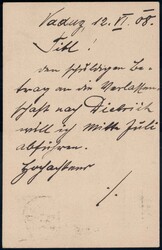 Vaduz, 12. VI. 08.
Titl!
den schuldigen Be-
trag an die Verlassen-
schaft nach Dietrich
will ich Mitte Juli
abführen.
Hochachtend